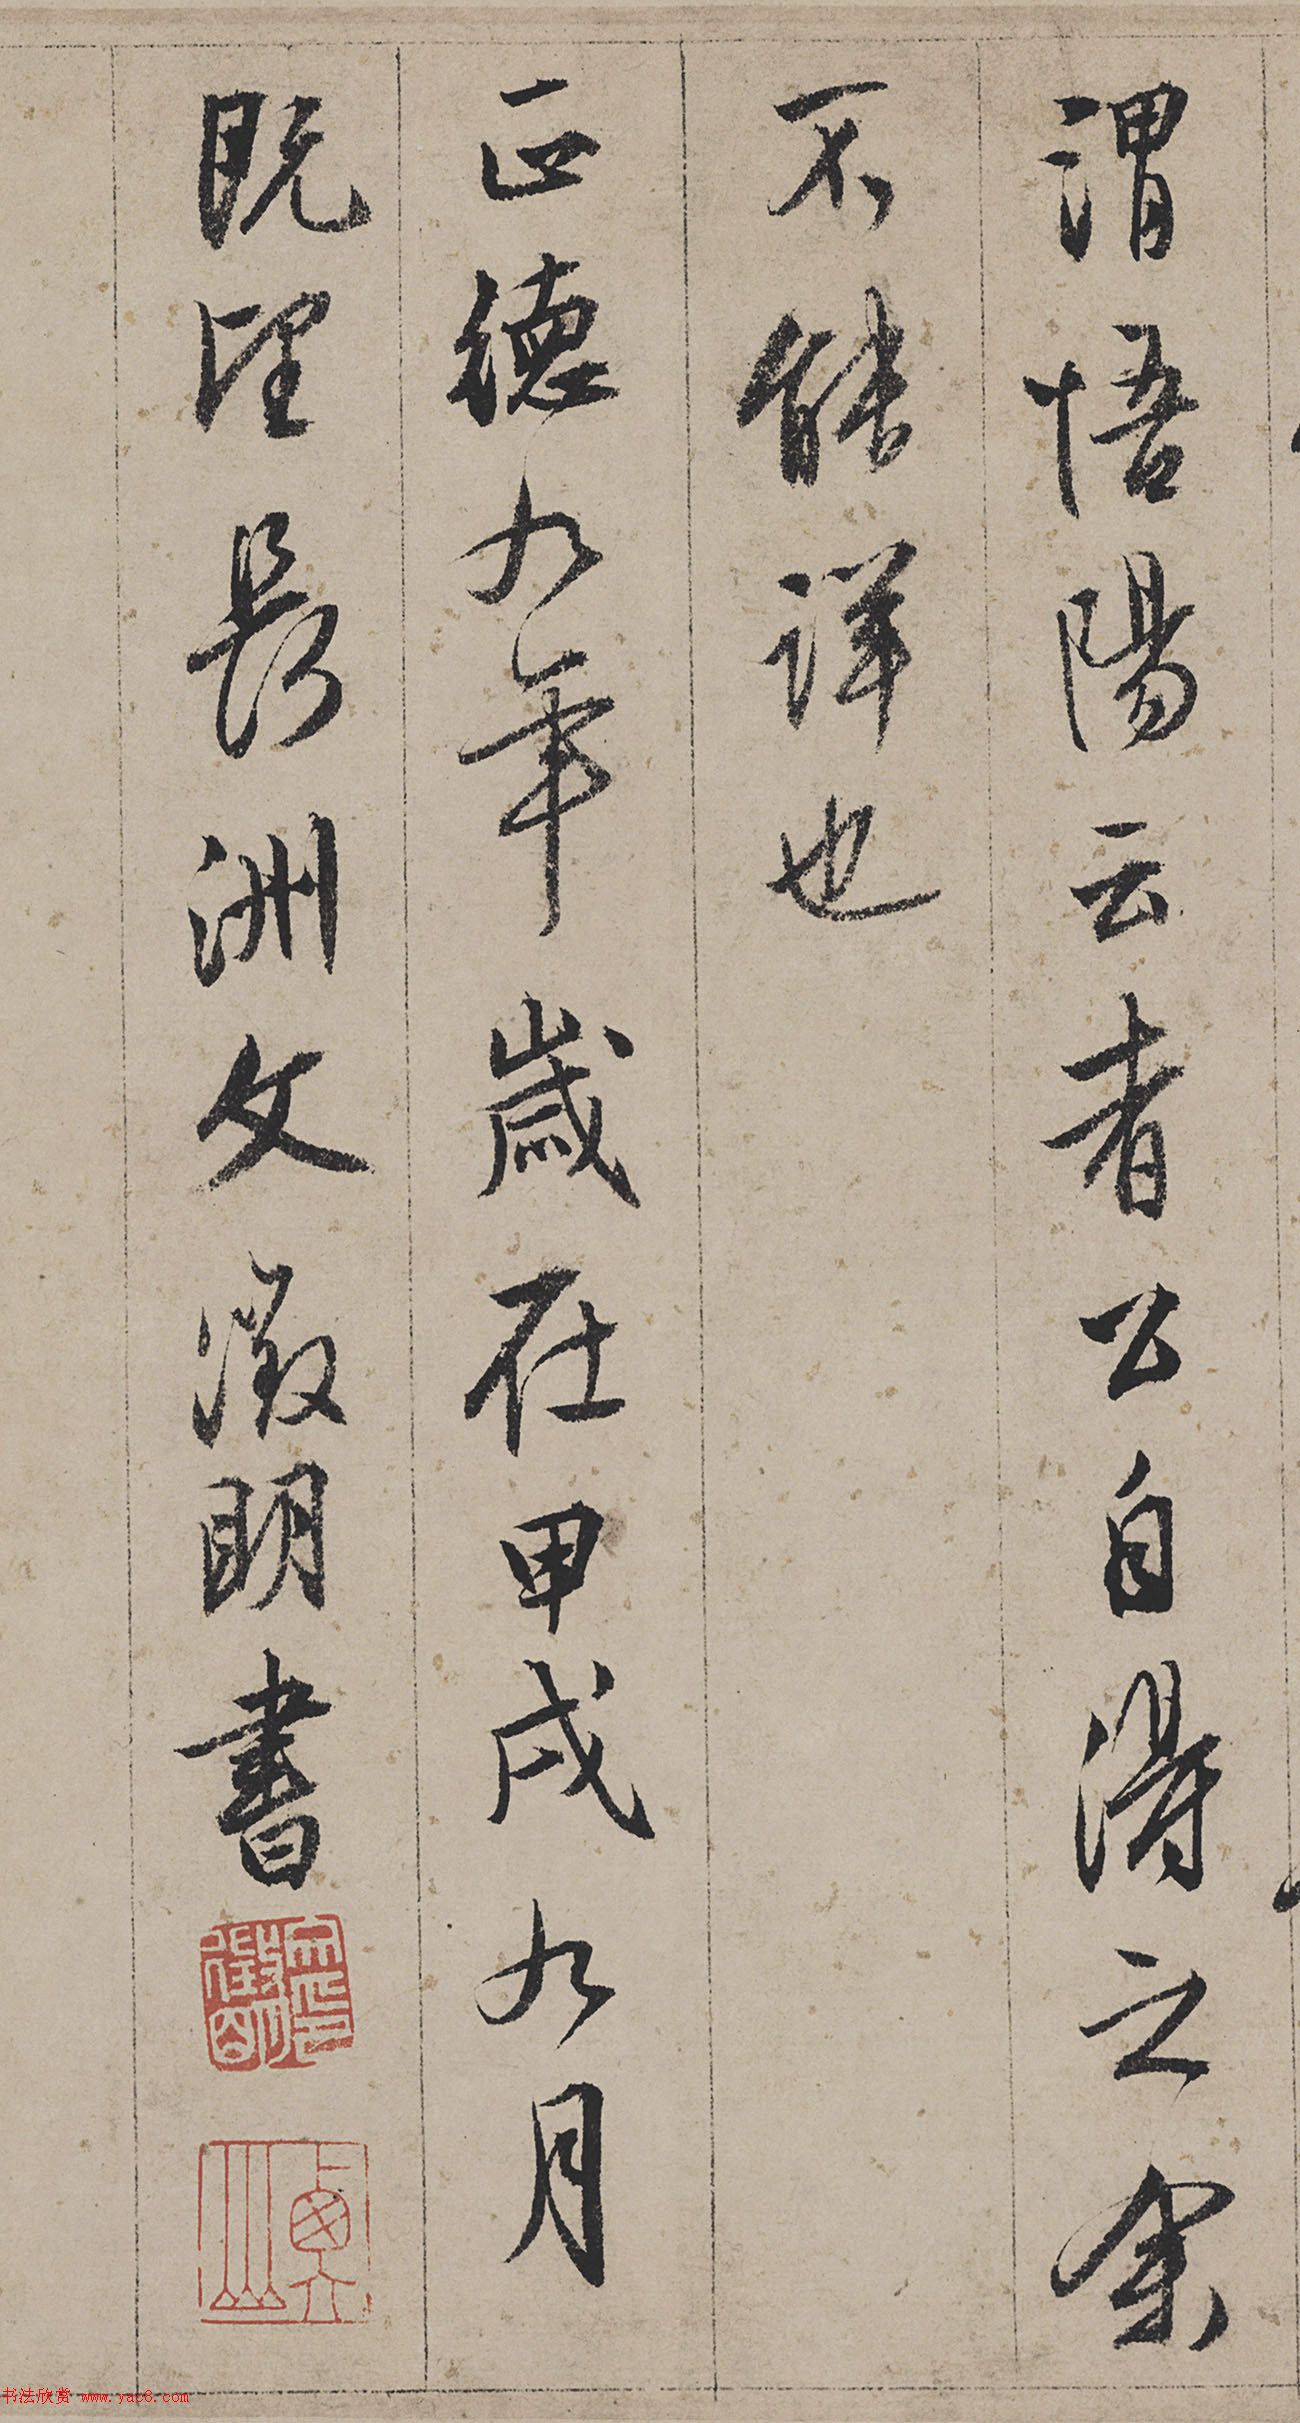 谓悟陽云者公自得之余
不能詳也
正德九年歲在甲戌九月
既望長洲文徵明書
徵明印
衡山
书法欣赏 www.yac8.com